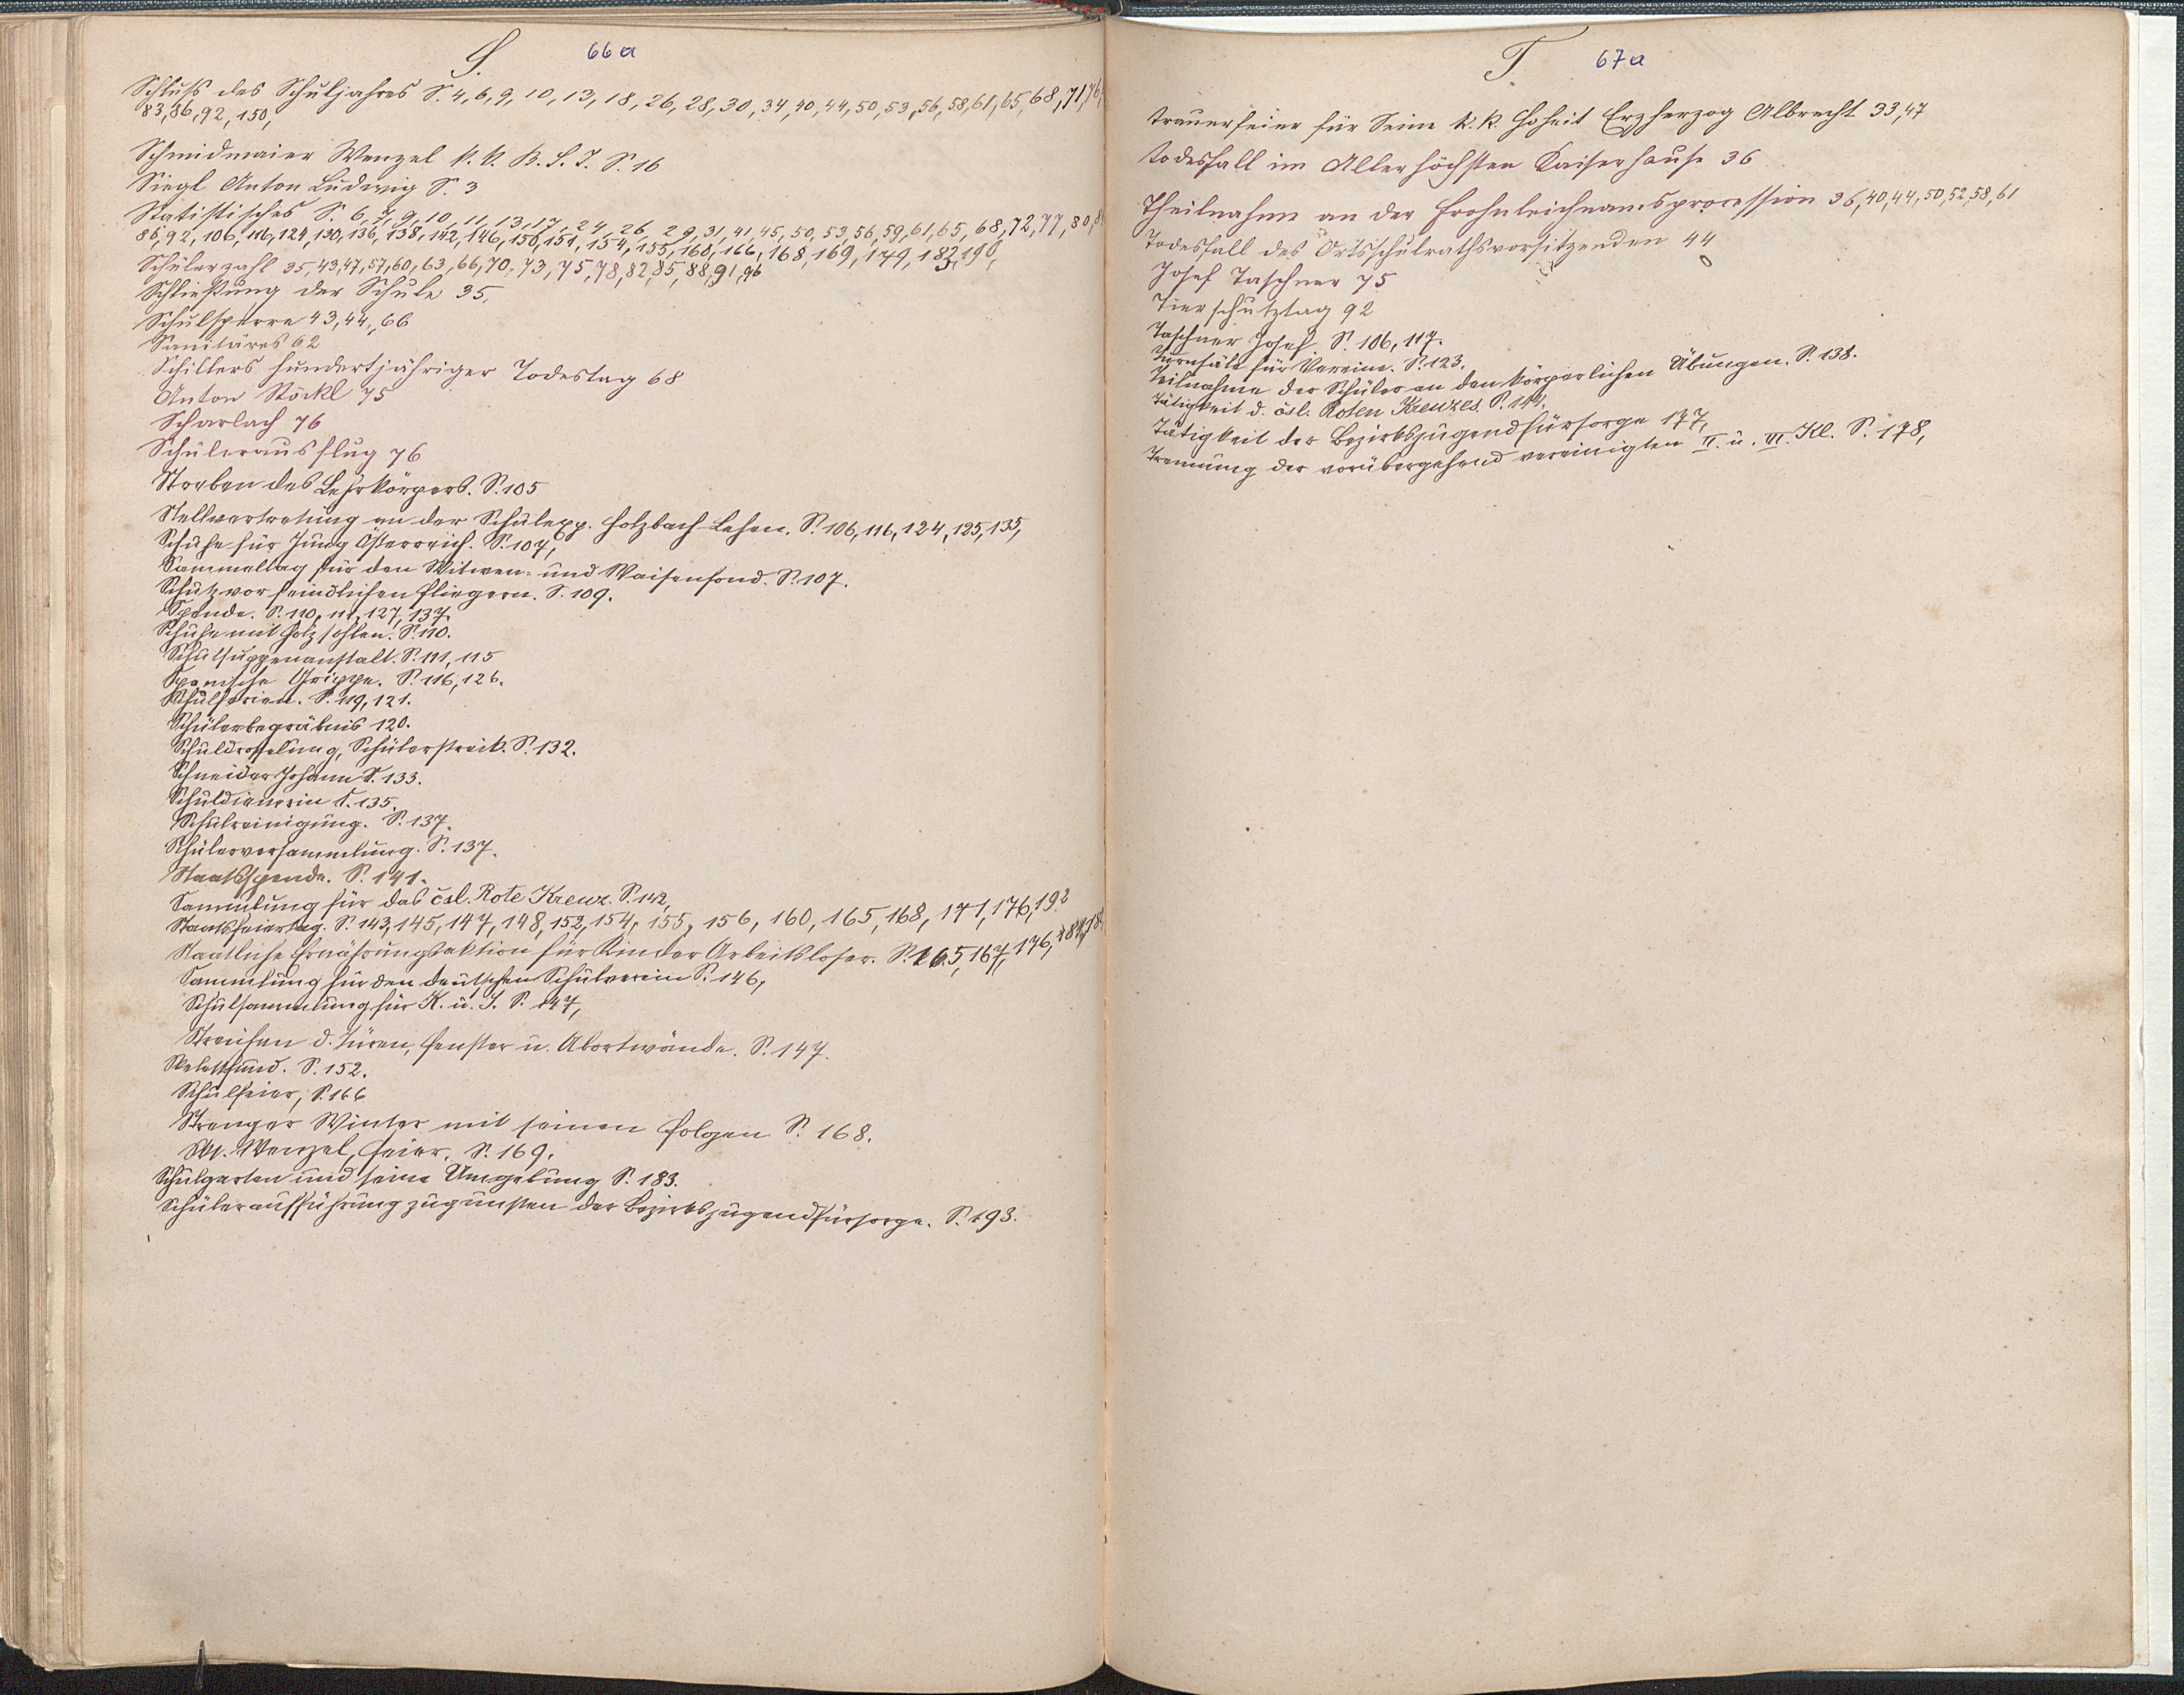 S. 66a
Schluß des Schuljahres S. 4, 6, 9, 10, 13, 18, 26, 28, 30, 34, 40, 44, 50, 53, 56, 58, 61, 65, 68, 71, 76,
83, 86, 92, 150,
Schmidmaier Wenzel k. k. B. S. I. S. 16
Siegl Anton Ludwig S. 3
Statistisches S. 6, 7, 9, 10, 11, 13, 17, 24, 26, 29, 31, 41, 45, 50, 53, 56, 59, 61, 65, 68, 72, 77, 80,
86, 92, 106, 116, 124, 130, 136, 138, 142, 146, 150, 151, 154, 155, 160, 166, 168, 169, 179, 183, 190,
Schülerzahl 35, 43, 47, 57, 60, 63, 66, 70, 73, 75, 78, 82, 85, 88, 91, 96
Schließung der Schule 35,
Schulsperre 43, 44, 66
Sanitäres 62
Schillers hundertjähriger Todestag 68
Anton Stöckl 75
Scharlach 76
Schülerausflug 76
Streben des Lehrkörpers. S. 105
Stellvertretung an der Schulexp. Holzbach-Lehen. S. 106, 116, 124, 125, 135,
Schuhe für Jung Österreich. S. 107,
Sammeltag für den Witwen- und Waisenfond. S. 107.
Schutz vor feindlichen Fliegern. S. 109.
Spende. S. 110, 111, 127, 137.
Schuhe mit Holzsohlen. S. 110.
Schulsuppenanstalt. S. 111, 115
Spanische Grippe. S. 116, 126.
Schulferien. S. 119, 121.
Schülerbegräbnis 120.
Schuldrosselung, Schülerstreik. S. 132.
Schneider Johann S. 133.
Schuldienerin S. 135.
Schulreinigung. S. 137.
Schülerversammlung. S. 137.
Staatsspende. S. 141.
Sammlung für das čsl. Rote Kreuz. S. 142,
Staatsfeiertag. S. 143, 145, 147, 148, 152, 154, 155, 156, 160, 165, 168, 171, 176, 192
Staatliche Ernährungsaktion für Kinder Arbeitsloser. S. 165, 167, 176,
Sammlung für den deutschen Schulverein S. 146,
Schulsammlung für K. u. J. S. 147,
Streichen d. Türen, Fenster u. Abortwände. S. 147.
Skelettfund. S. 152.
Schulfeier, S. 166
Strenger Winter mit seinen Folgen S. 168.
St. Wenzel, Feier. S. 169.
Schulgarten und seine Umgebung S. 183.
Schüleraufführung zugunsten der Bezirksjugendfürsorge. S. 193.
T. 67a
Trauerfeier für Seine k. k. Hoheit Erzherzog Albrecht 33, 47
Todesfall im Allerhöchsten Kaiserhause 36
Theilnahme an der Frohnleichnamsprocession 36, 40, 44, 50, 52, 58, 61
Todesfall des Ortsschulrathsvorsitzenden 44
Josef Taschner 75
Tierschutztag 92
Taschner Josef S. 106, 117.
Turnsäle für Vereine. S. 123.
Teilnahme der Schüler an den körperlichen Übungen. S. 138.
Tätigkeit d. čsl. Roten Kreuzes. S. 144.
Tätigkeit der Bezirksjugendfürsorge 177,
Trennung der vorübergehend vereinigten II. u. III. Kl. S. 178,